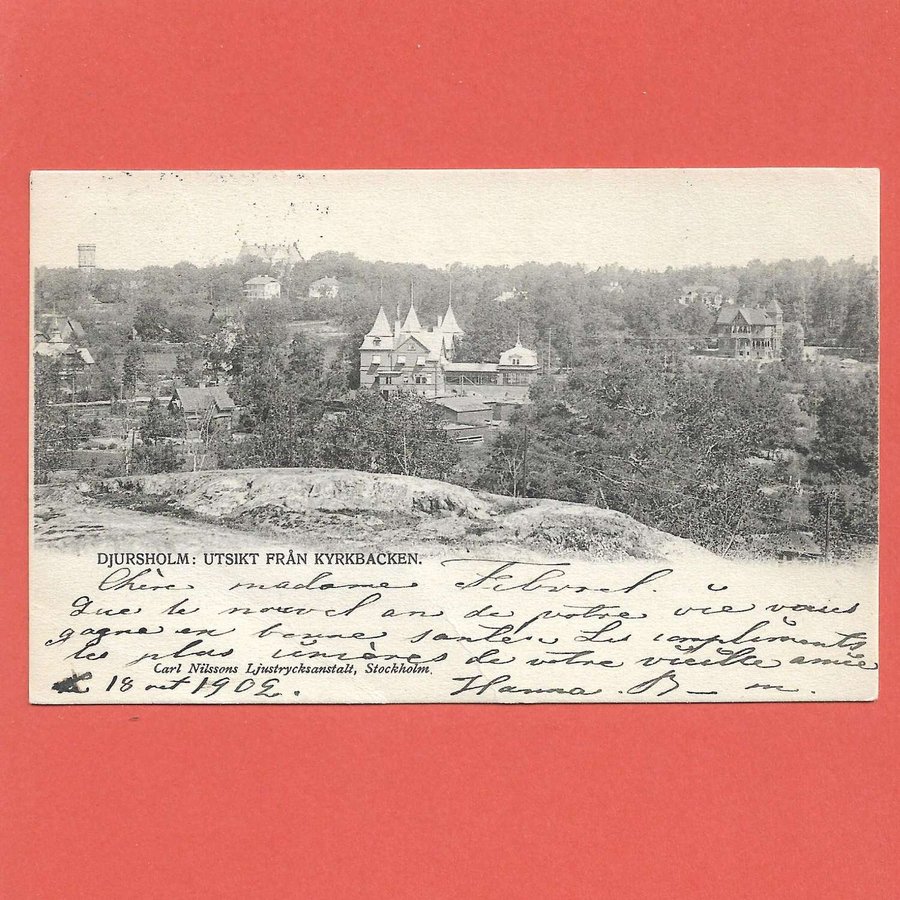 DJURSHOLM: UTSIKT FRÅN KYRKBACKEN.
Chère madame
Que le nouvel an de votre vie vous
gagne en bonne santée. Les compliments
les plus sincères de votre vieille amiée
Carl Nilssons Ljustrycksanstalt, Stockholm.
18 oct 1902. Hanna B—m